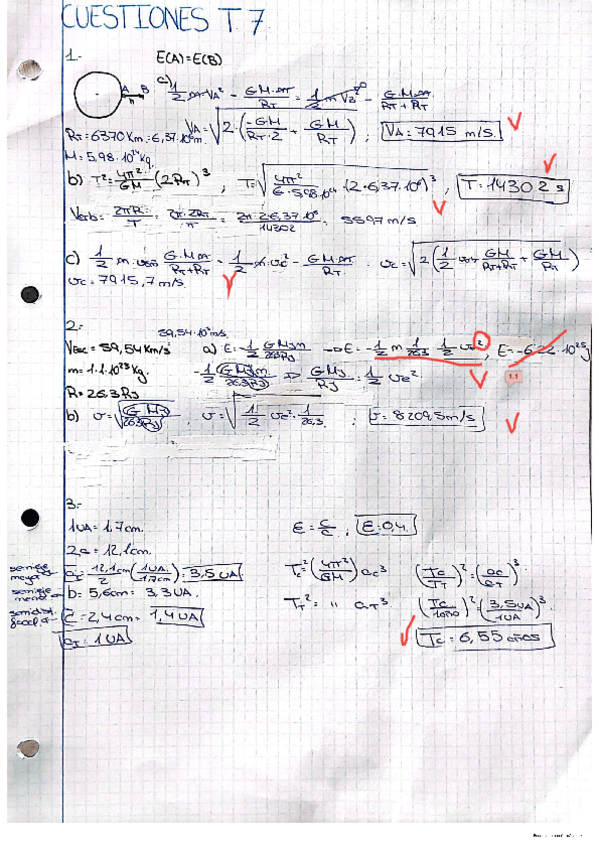 CUESTIONES T.7
1.- E(A)=E(B)
A B
h
a) 1/2 m VA² - G·M·m/RT = 1/2 m VB² - G·M·m/(RT+RT)
RT = 6370 Km = 6,37·10⁶m. VA = √(2·(-GM/(RT·2) + GM/RT)) ; VA = 7915 m/s.
M = 5,98·10²⁴Kg.
b) T² = 4π²/GM (2RT)³ , T = √(4π²/(G·5,98·10²⁴)·(2·6,37·10⁶)³ , T = 14302 s
Vorb = 2πR/T = 2π·2RT/T = 2π·2·6,37·10⁶/14302 = 5597 m/s
c) 1/2 m·vorb² - G·M·m/(RT+RT) = 1/2 m·vc² - G·M·m/RT . vc = √(2(1/2 vorb² - GM/(RT+RT) + GM/RT)
vc = 7915,7 m/s.
2.-
59,54·10³m/s.
Vesc = 59,54 Km/s a) E = -1/2 GMjm/26,3Rj → E = -1/2 m 1/26,3 · 1/2 ve² , E = -6,22·10²⁵J
m = 1.1·10²³Kg. -1/2 (GMjm/26,3Rj) ⇒ GMj/Rj = 1/2 ve²
1.1
R = 26,3Rj
b) v = √(G Mj/26,3Rj) , v = √(1/2 ve²·1/26,3 ; v = 8209,5m/s
3.-
1UA = 1,7cm. e = c/a , e = 0,4.
2a = 12,1cm.
semieje mayor ac = 12,1cm/2 (1UA/1,7cm) = 3,5 UA Tc² = (4π²/GM) ac³ (Tc/TT)² = (ac/aT)³
semieje menor b = 5,6cm = 3,3UA. TT² = " aT³ (Tc/1año)² = (3,5UA/1UA)³
c = 2,4cm = 1,4 UA
aT = 1UA Tc = 6,55 años